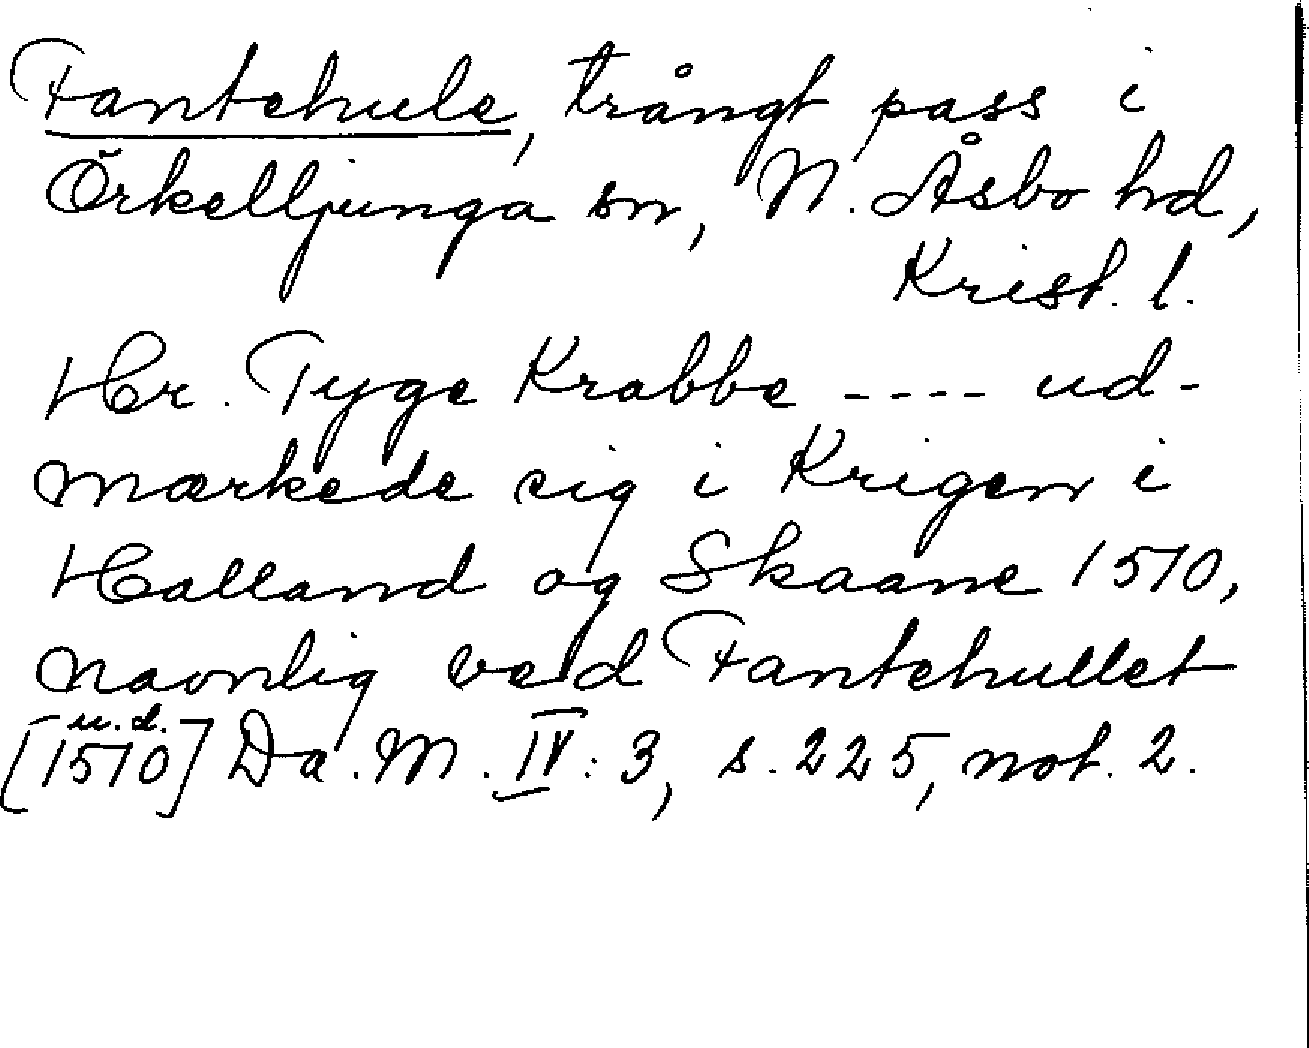 Fantehule, trångt pass i
Örkelljunga sn, N. Åsbo hd,
Krist. l.
Hr. Tyge Krabbe ---- ud-
mærkede sig i Krigen i
Halland og Skaane 1510,
navnlig ved Fantehullet
u. d.
[1510] Da. M. IV: 3, s. 225, not. 2.